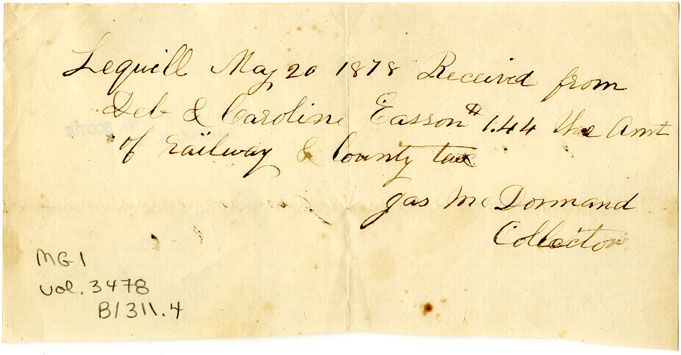 Lequille May 20 1878 Received from
Deb & Caroline Easson $1.44 the Amt
of railway & County tax
Jas McDormand
Collector
MG1
vol. 3478
B1311.4